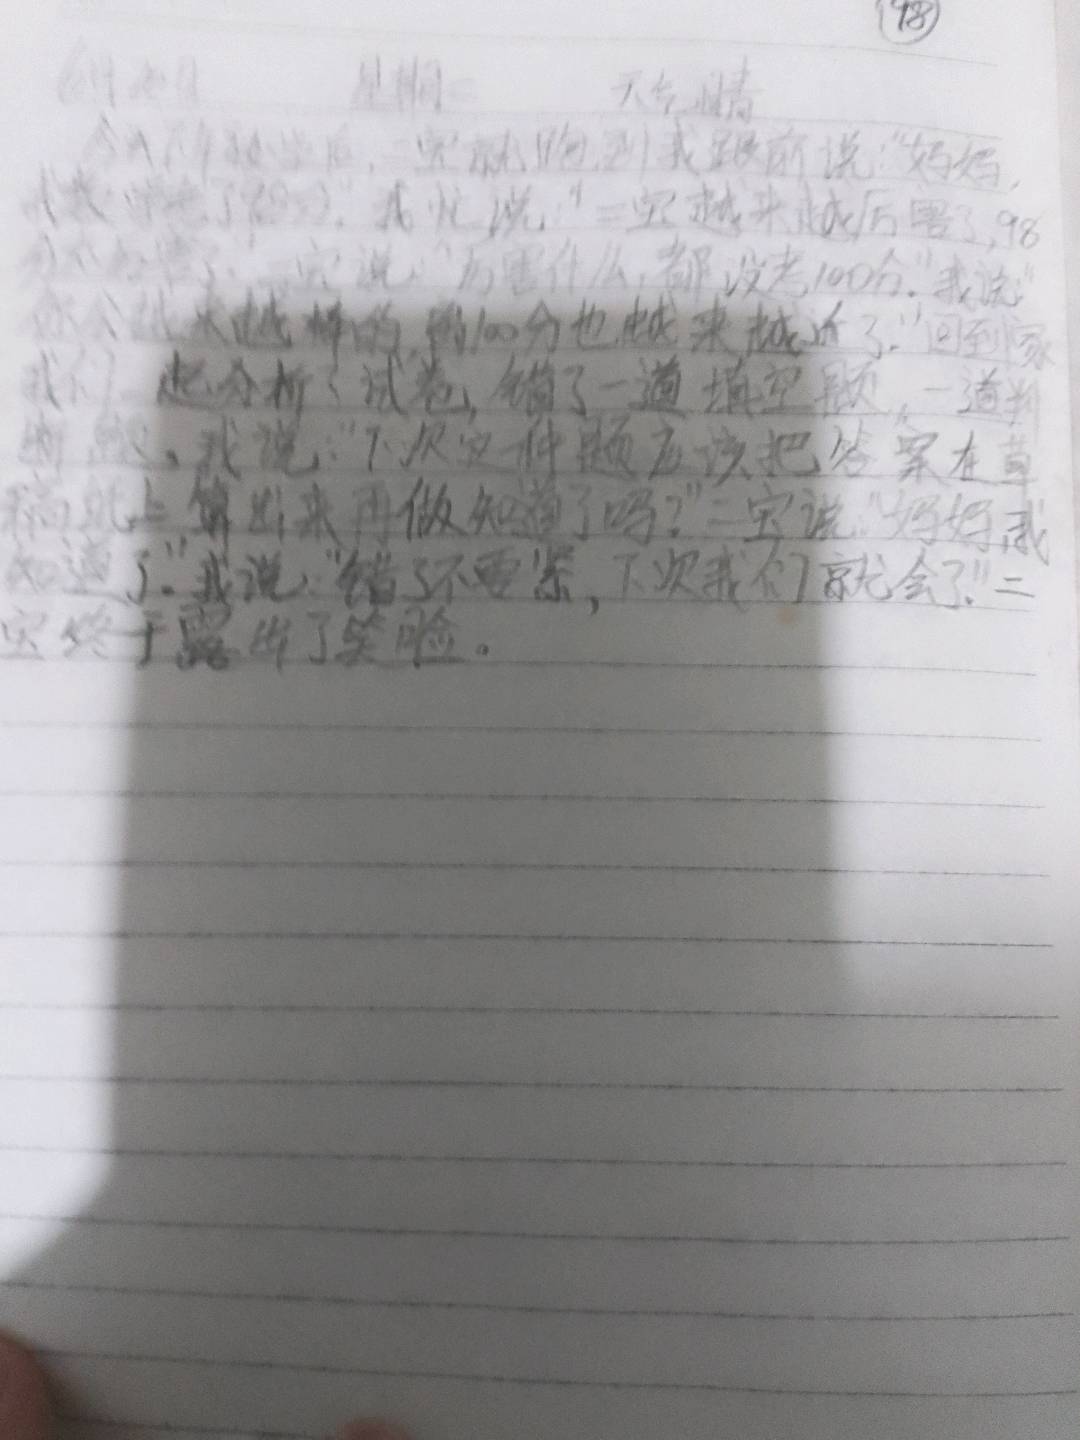 98
星期二 天气晴
今天 放学后,二宝就跑到我跟前说:“妈妈,
我数学考了98分”。我忙说:“二宝越来越厉害了,98
分 了”二宝说:“厉害什么,都没考100分。”我说:“
你会越来越棒的,离100分也越来越近了。”回到家
我们一起分析了试卷,错了一道填空题,一道判
断题。我说:“下次这种题应该把答案在草
稿纸上算出来再做知道了吗?”二宝说:“妈妈,我
知道了。”我说:“错了不要紧,下次我们就会了。”二
宝终于露出了笑脸。